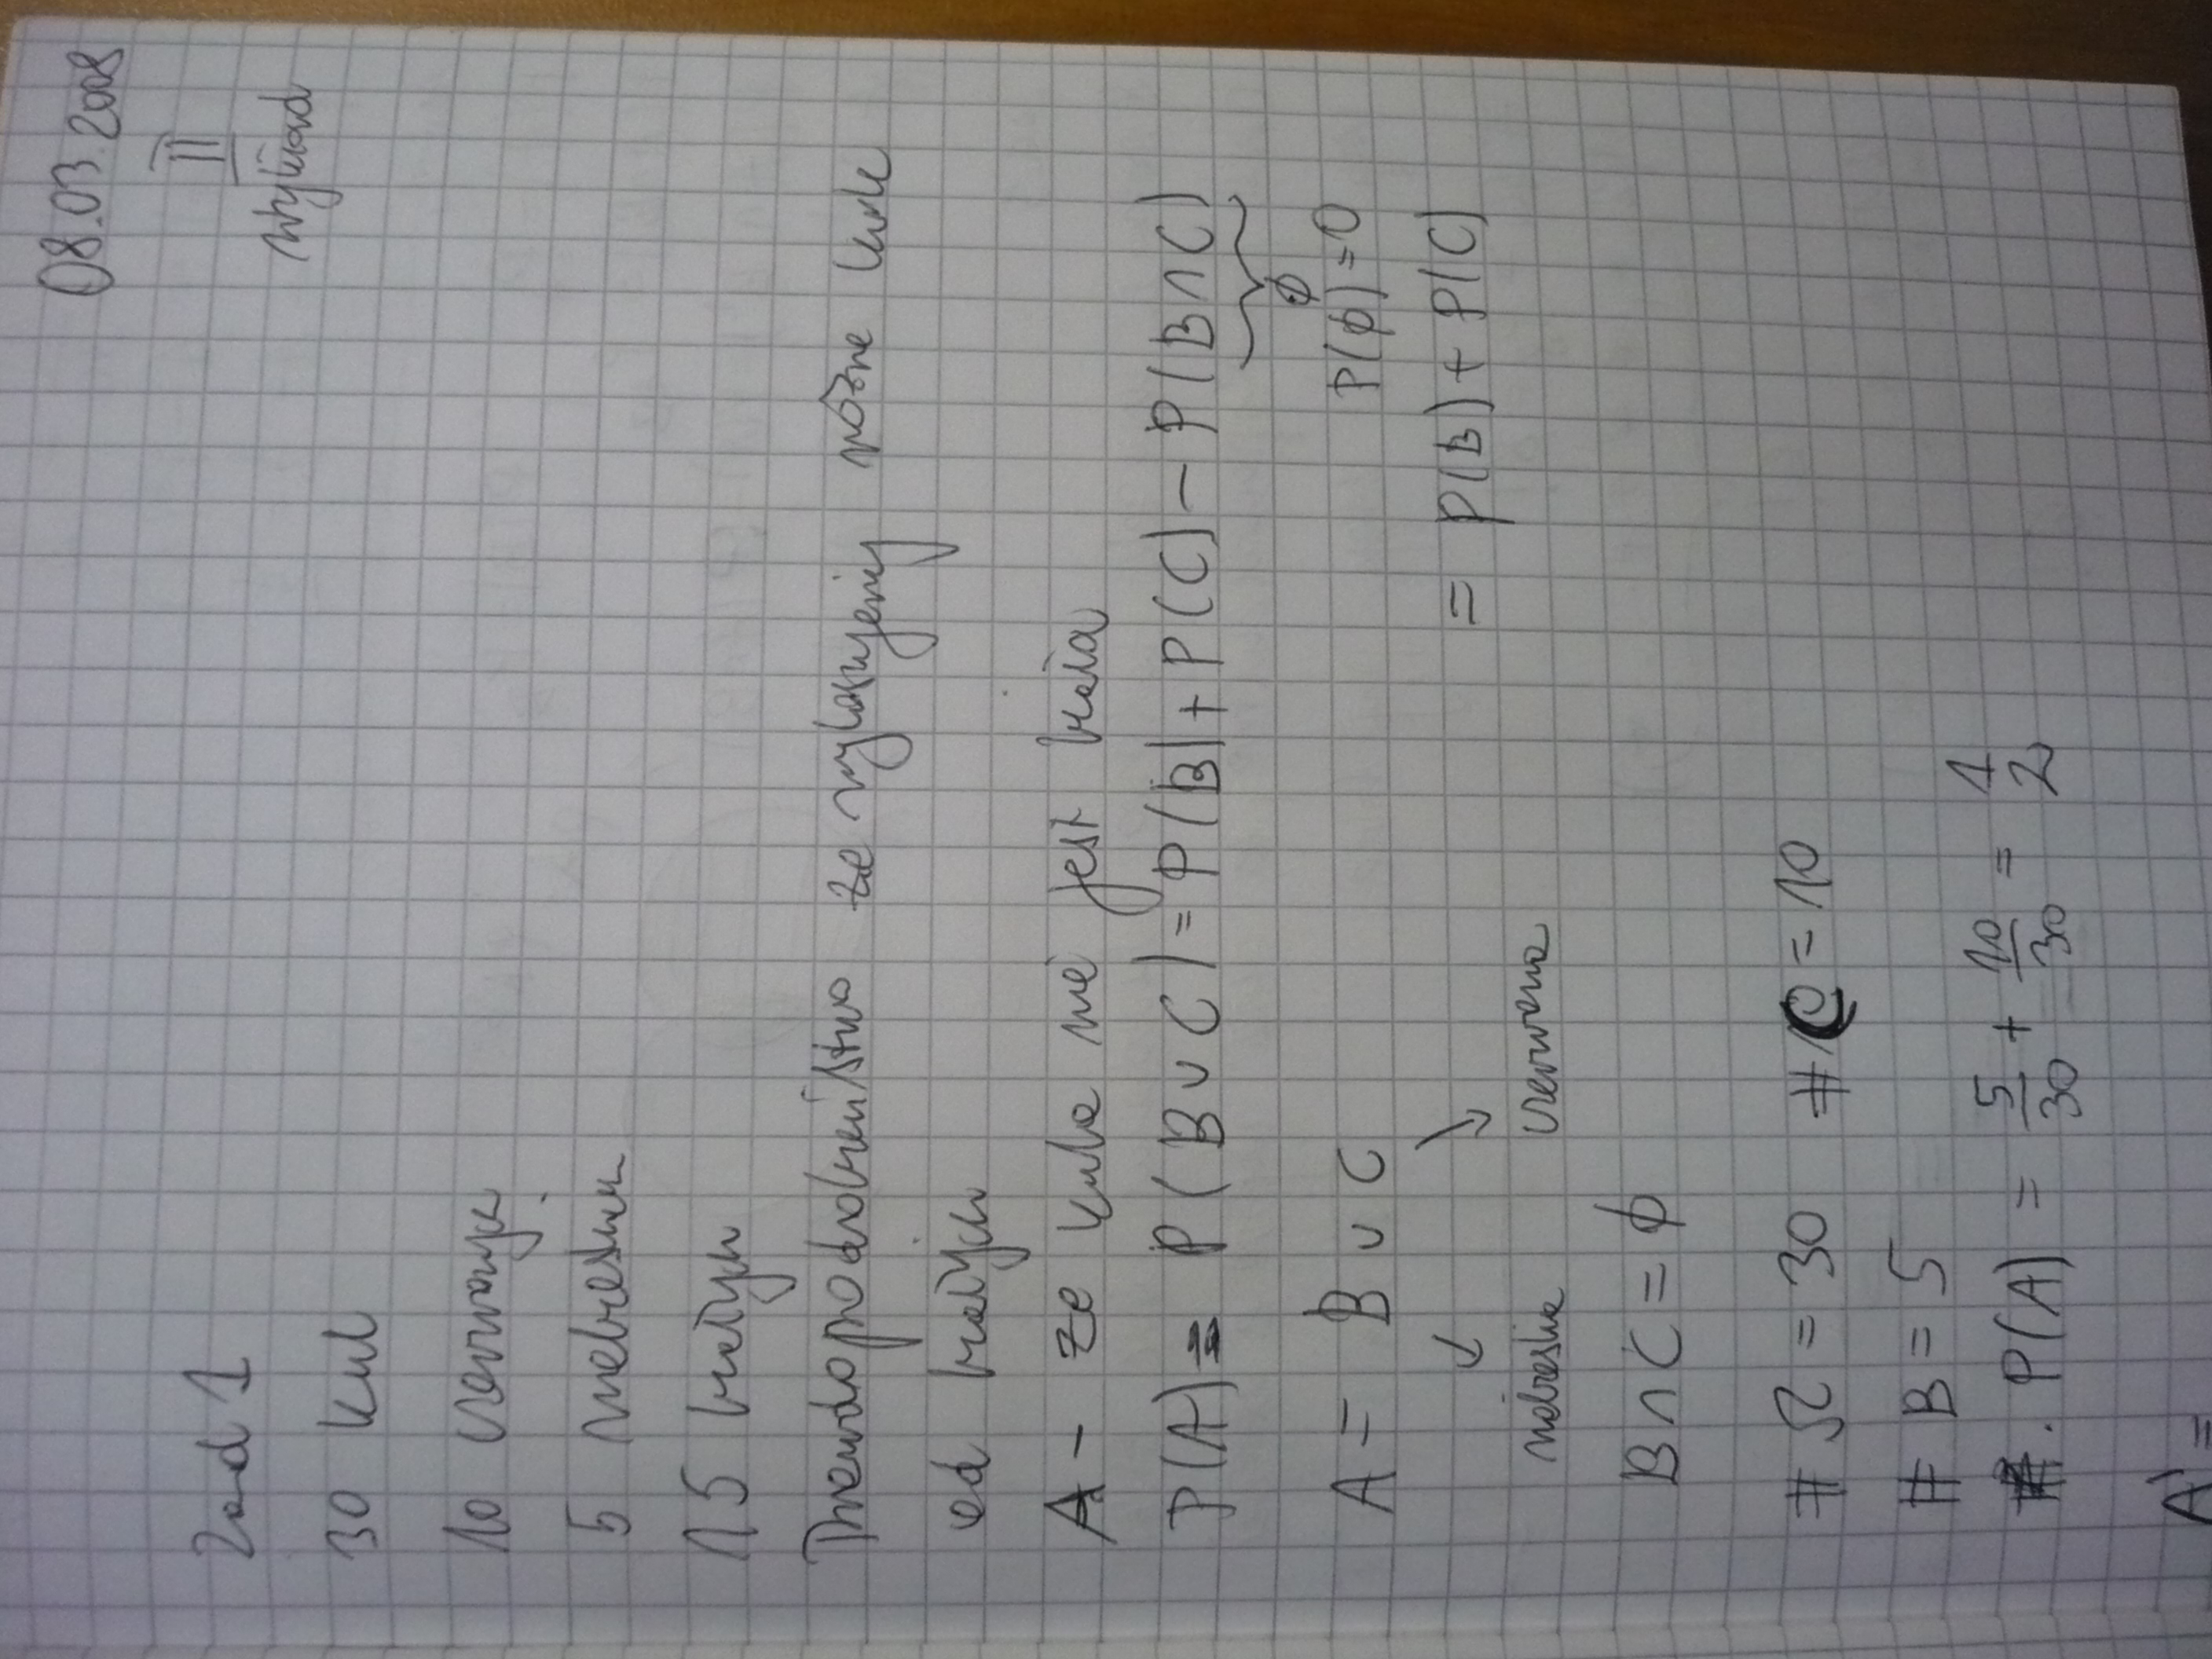 08.03.2008
II
wykład
Zad 1
30 kul
10 czarnych
5 niebieskich
15 białych
Prawdopodobieństwo że wylosujemy różne kule
od białych
A - że kula nie jest biała
P(A) = P(B ∪ C) = P(B) + P(C) - P(B ∩ C)
∅
P(∅) = 0
A = B ∪ C
= P(B) + P(C)
↓ ↓
niebieska czerwona
B ∩ C = ∅
# Ω = 30 # C = 10
# B = 5
P(A) = 5/30 + 10/30 = 1/2
A' =